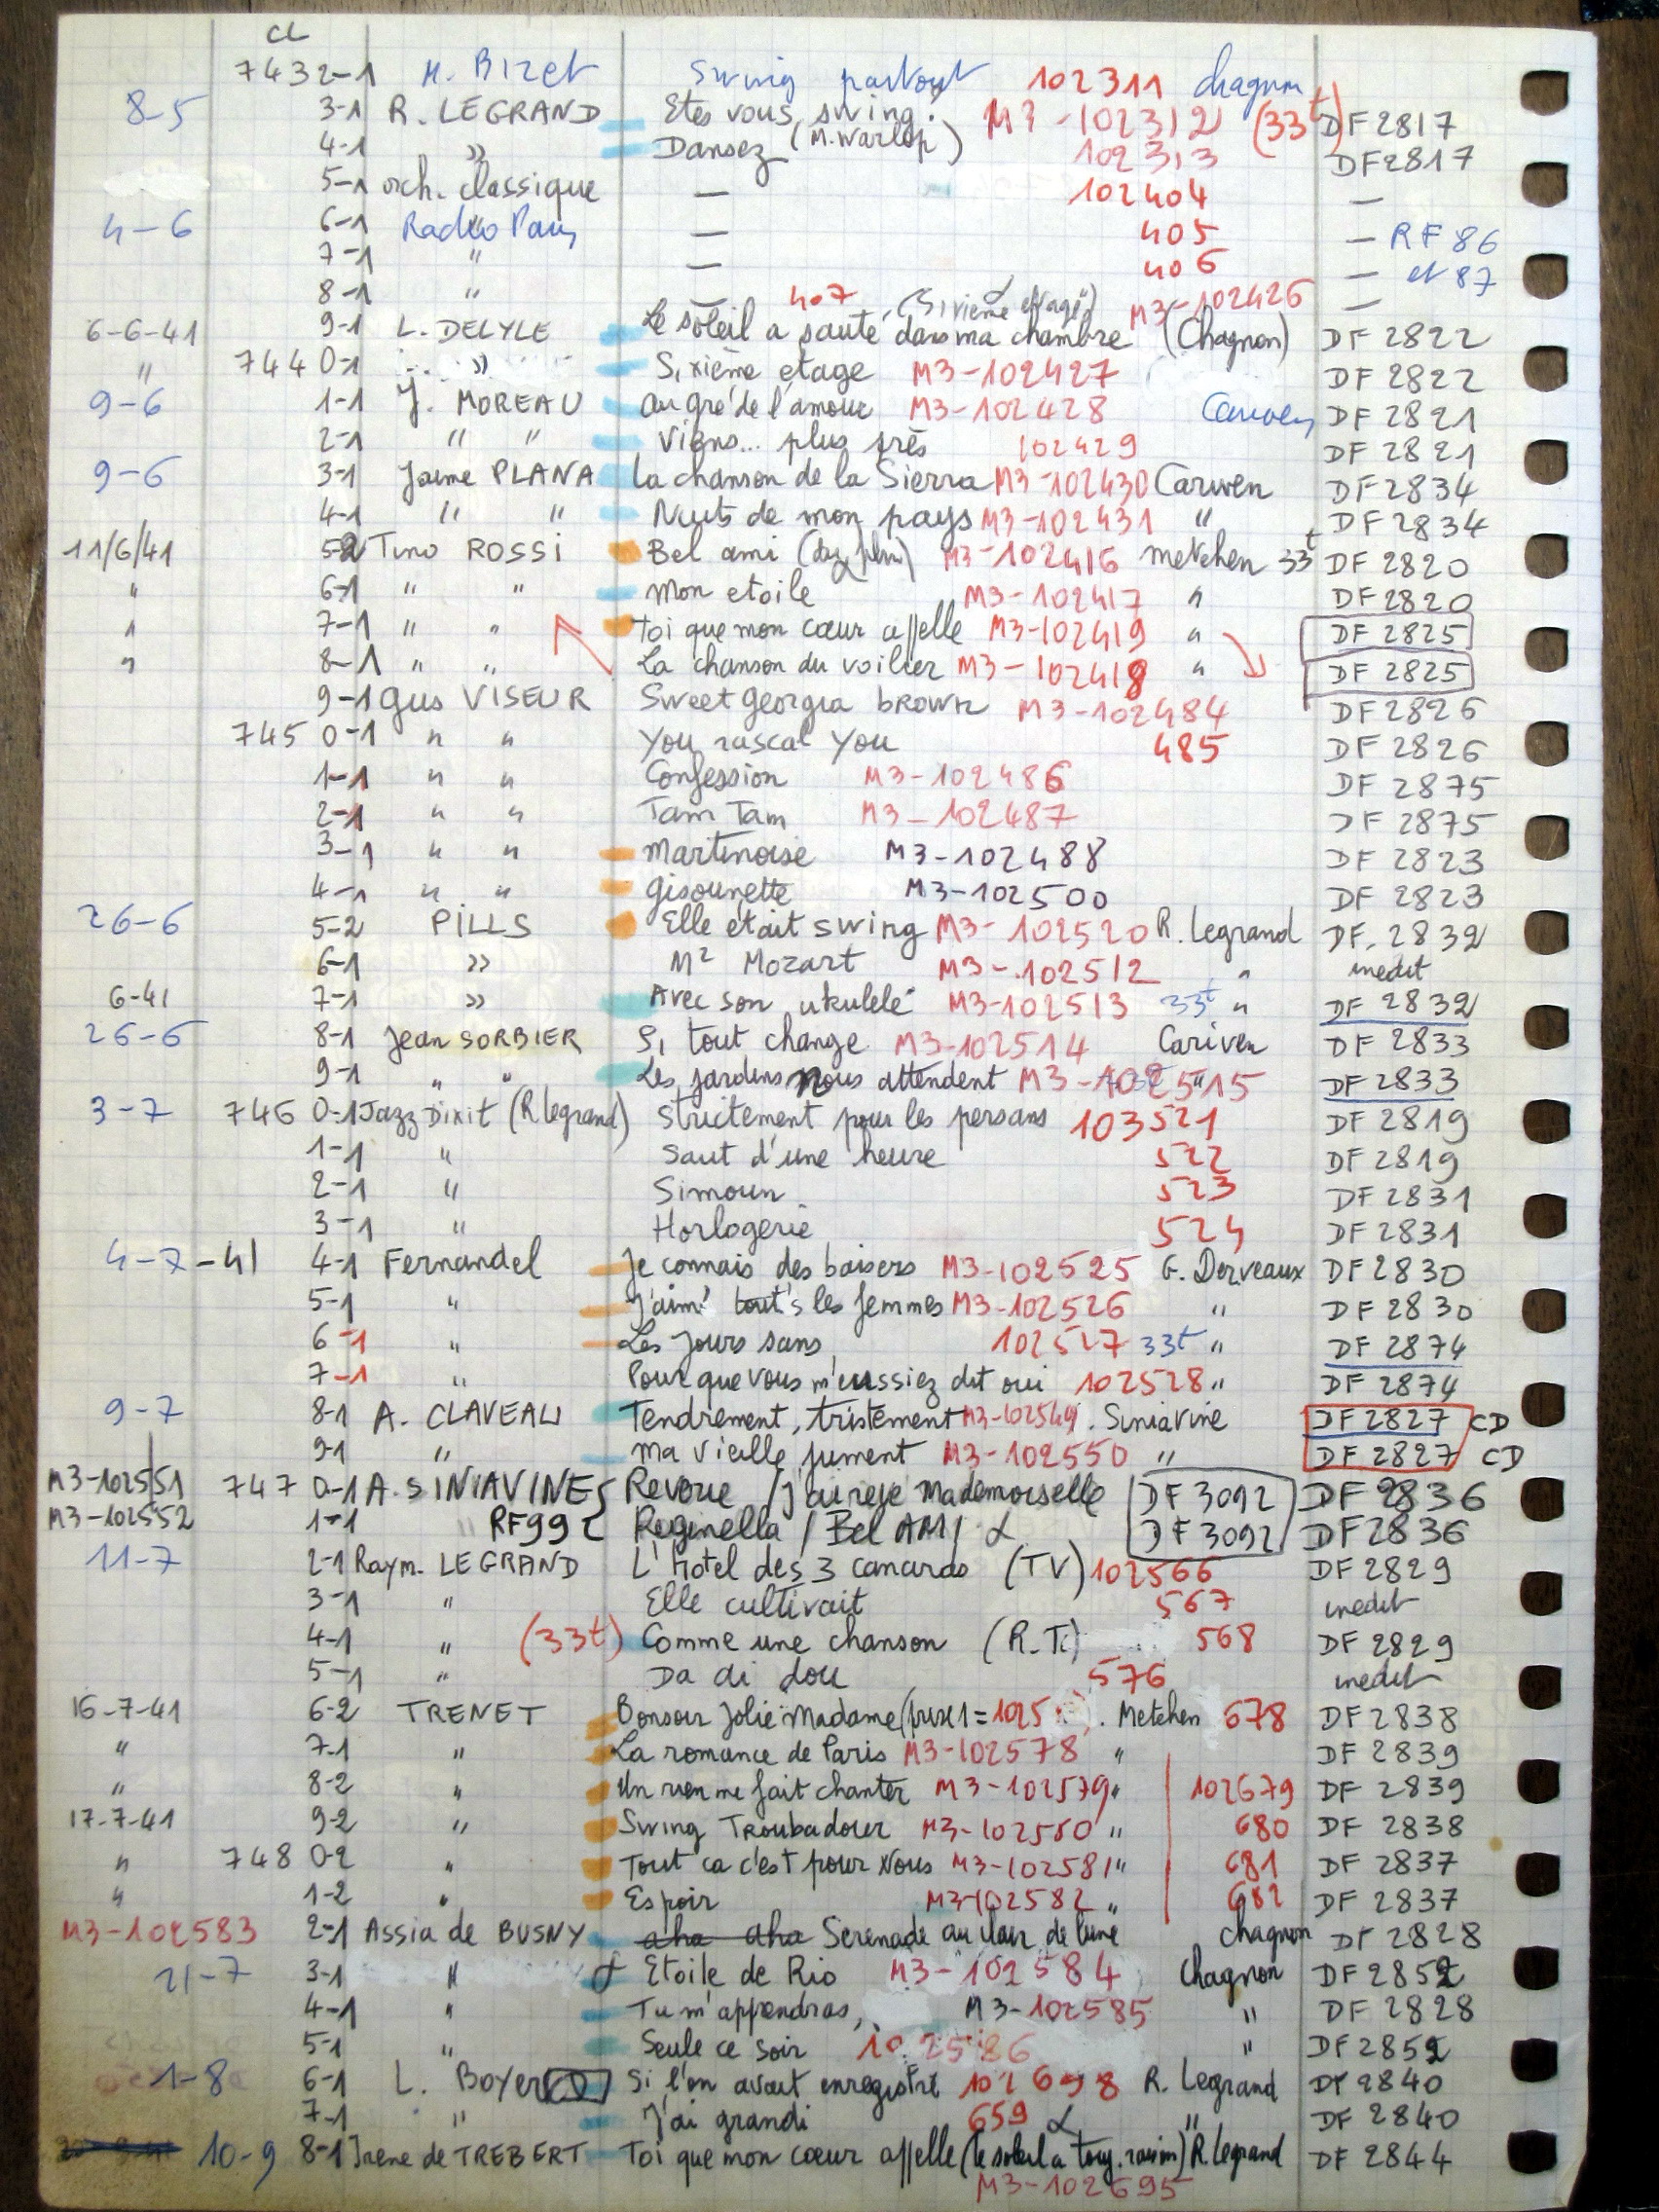 CL
7432-1 M. Bizet Swing partout 102311 chagnon
8-5 3-1 R. LEGRAND Etes vous swing. M3-102312 (33t) DF2817
4-1 » Dansez (M. Warlop) 102313 DF2817
5-1 orch. classique — 102404 —
4-6 6-1 Radio Paris — 405 — RF 86
7-1 " — 406 — et 87
8-1 " — 407 (Sixième étage) M3-102426 —
6-6-41 9-1 L. DELYLE Le soleil a sauté dans ma chambre (Chagnon) DF 2822
" 744 0-1 » Sixième etage M3-102427 DF 2822
9-6 1-1 J. MOREAU au gré de l'amour M3-102428 Cariven DF 2821
2-1 " " Viens... plus près 102429 DF 2821
9-6 3-1 Jaime PLANA La chanson de la Sierra M3-102430 Cariven DF 2834
4-1 " " Nuits de mon pays M3-102431 " DF 2834
11/6/41 5-2 Tino ROSSI Bel ami (du film) M3-102416 metehen 33t DF 2820
" 6-1 " " Mon etoile M3-102417 " DF 2820
" 7-1 " " Toi que mon cœur appelle M3-102419 " DF 2825
" 8-1 " " La chanson du voilier M3-102418 " DF 2825
9-1 Gus VISEUR Sweet georgia brown M3-102484 DF2826
745 0-1 " " You rascal You 485 DF 2826
1-1 " " Confession M3-102486 DF 2875
2-1 " " Tam Tam M3-102487 DF 2875
3-1 " " Martinoise M3-102488 DF 2823
4-1 " " Gisounette M3-102500 DF 2823
26-6 5-2 PILLS Elle etait swing M3-102520 R. Legrand DF. 2832
6-1 » Mr Mozart M3-102512 " inedit
6-41 7-1 » Avec son ukulele M3-102513 33t " DF 2832
26-6 8-1 Jean SORBIER Si tout change M3-102514 Cariven DF 2833
9-1 " " Les jardins nous attendent M3-102515 " DF 2833
3-7 746 0-1 Jazz Dixit (R. legrand) Strictement pour les persans 103521 DF 2819
1-1 " Saut d'une heure 522 DF 2819
2-1 " Simoun 523 DF 2831
3-1 " Horlogerie 524 DF 2831
4-7-41 4-1 Fernandel Je connais des baisers M3-102525 G. Derveaux DF 2830
5-1 " J'aim' tout's les femmes M3-102526 " DF 2830
6-1 " Les jours sans 102527 33t " DF 2874
7-1 " Pour que vous m'eussiez dit oui 102528 " DF 2874
9-7 8-1 A. CLAVEAU Tendrement, tristement M3-102549. Siniavine DF 2827 CD
9-1 " ma vieille jument M3-102550 " DF 2827 CD
M3-102551 747 0-1 A. SINIAVINE Reverie / J'ai reve Mademoiselle DF 3092 DF 2836
M3-102552 1-1 " RF992 Reginella / Bel AMI DF 3092 DF 2836
11-7 2-1 Raym. LEGRAND L'Hotel des 3 canards (TV) 102566 DF 2829
3-1 " Elle cultivait 567 inedit
4-1 " (33t) Comme une chanson (R.T.) 568 DF 2829
5-1 " Da di dou 576 inedit
16-7-41 6-2 TRENET Bonsoir Jolie Madame (prise 1 = 1025 ). Metehen 678 DF 2838
" 7-1 " La romance de Paris M3-102578 " DF 2839
" 8-2 " Un rien me fait chanter M3-102579 " 102679 DF 2839
17-7-41 9-2 " Swing Troubadour M3-102580 " 680 DF 2838
" 748 0-2 " Tout ca c'est pour Nous M3-102581 " 681 DF 2837
" 1-2 " Espoir M3-102582 " 682 DF 2837
M3-102583 2-1 Assia de BUSNY aha aha Serenade au clair de lune chagnon DF 2828
21-7 3-1 " Etoile de Rio M3-102584 Chagnon DF 2852
4-1 " Tu m'apprendras, M3-102585 " DF 2828
5-1 " Seule ce soir 102586 " DF 2852
1-8 6-1 L. Boyer CD Si l'on avait enregistré 102658 R. Legrand DF 2840
7-1 " J'ai grandi 659 " DF 2840
10-9 8-1 Irene de TREBERT Toi que mon cœur appelle (le soleil a touj. raison) R. Legrand DF 2844
M3-102695